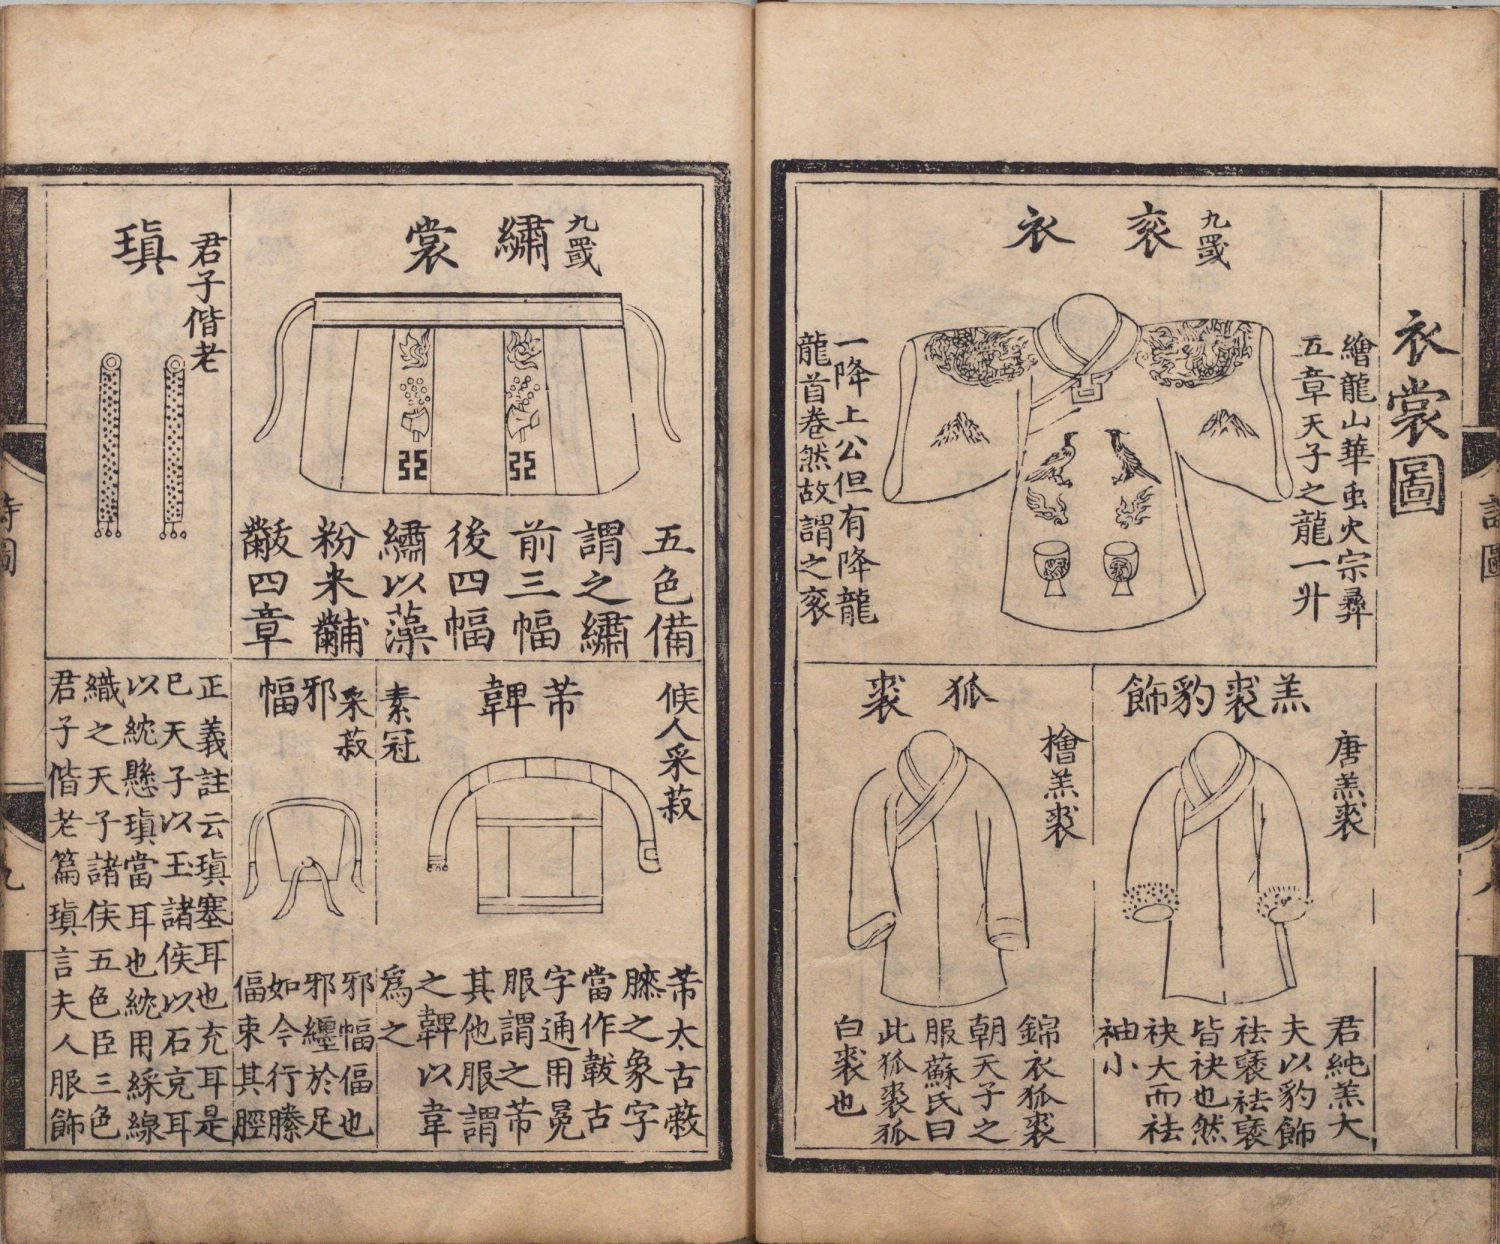 衣裳圖
九罭
袞衣
繪龍山華虫火宗彝
五章天子之龍一升
一降上公但有降龍
龍首卷然故謂之袞
羔裘豹飾
唐羔裘
君純羔大
夫以豹飾
袪褎袪褎
皆袂也然
袂大而袪
袖小
狐裘
檜羔裘
錦衣狐裘
朝天子之
服蘇氏曰
此狐裘狐
白裘也
詩圖
九罭
繡裳
五色備
謂之繡
前三幅
後四幅
繡以藻
粉米黼
黻四章
君子偕老
瑱
候人采菽
芾韠
素冠
芾太古蔽
膝之象字
當作韍古
字通用冕
服謂之芾
其他服謂
之韠以韋
爲之
采菽
邪幅
邪幅偪也
邪纏於足
如今行縢
偪束其脛
正義註云瑱塞耳也充耳是
巳天子以玉諸侯以石克耳
以紞懸瑱當耳也紞用綵線
織之天子諸侯五色臣三色
君子偕老篇瑱言夫人服飾
詩圖
九